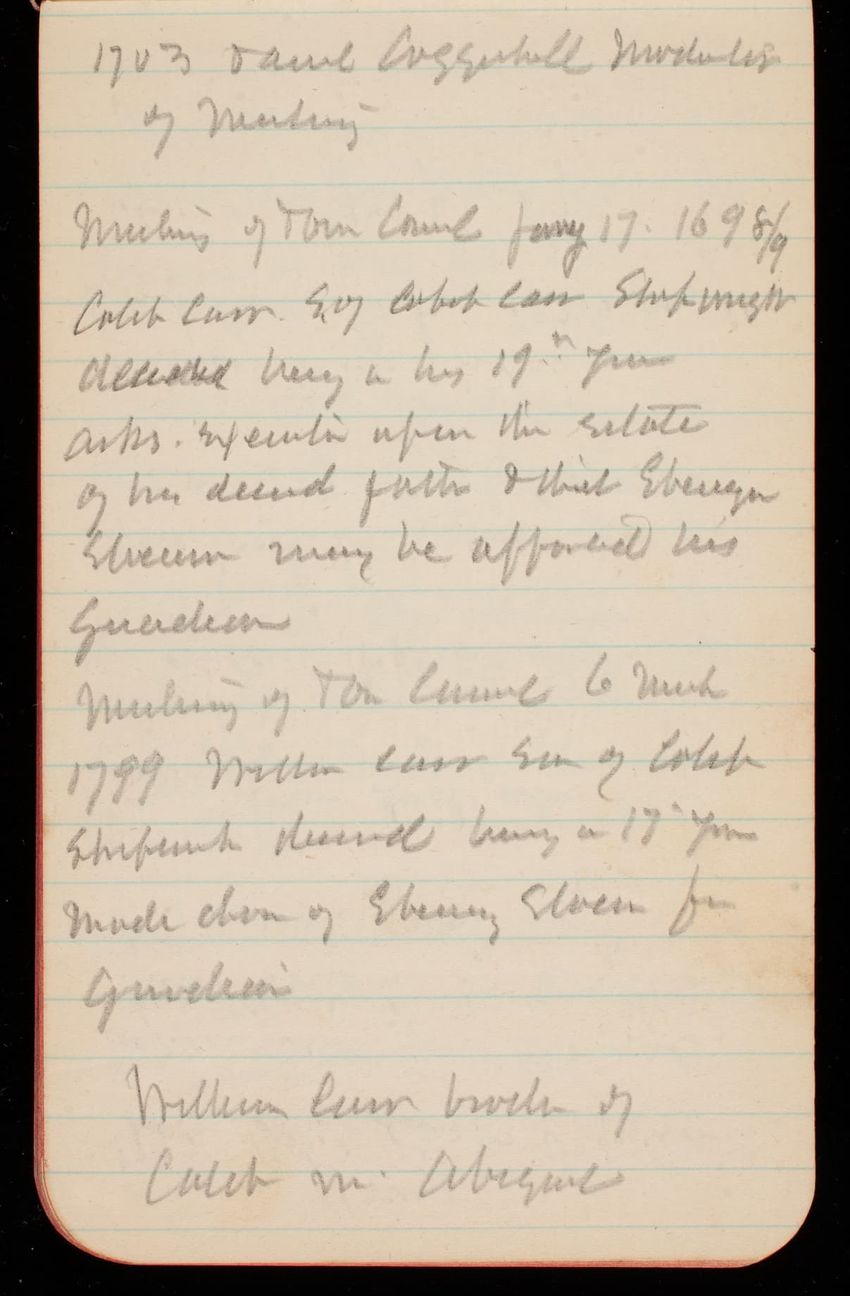 1703 Daniel Coggeshall Moderator
of Meeting
Meeting of Town Council Jany 17. 1698/9
Caleb Carr. S. of Caleb Carr Shipwright
deceased being in his 19th year
asks. Executor upon the Estate
of his deceasd father & that Ebenezer
Slocum may be appointed his
Guardian
Meeting of Town Council 6 March
1799 William Carr Son of Caleb
Shipwright deceased being in 17 year
Made choice of Ebenezer Slocum for
Guardian
William Carr brother of
Caleb m. Abigail